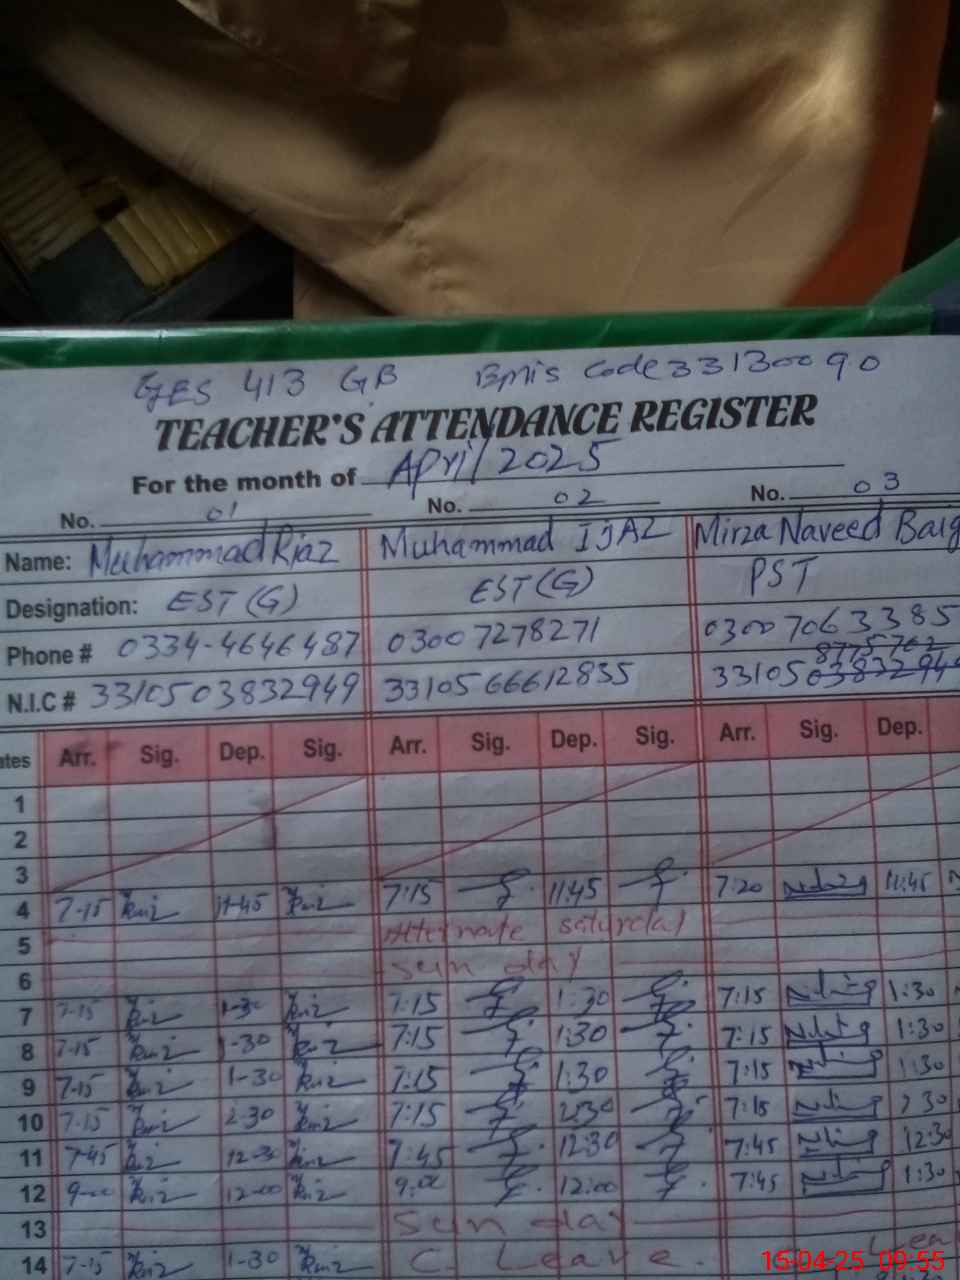 GES 413 GB Bmis Code 33130090
TEACHER'S ATTENDANCE REGISTER
For the month of April 2025
No. 01 No. 02 No. 03
Name: Muhammad Riaz Muhammad IJAZ Mirza Naveed Baig
Designation: EST (G) EST (G) PST
Phone # 0334-4646487 03007278271 03007063385
8775762
N.I.C # 3310503832949 3310566612835 33105
Arr. Sig. Dep. Sig. Arr. Sig. Dep. Sig. Arr. Sig. Dep.
1
2
3
4 7-15 Riaz 11-45 Riaz 7:15 11:45 7:20 11:45
5 Alternate Saturday
6 Sunday
7 7-15 Riaz 1-30 Riaz 7:15 1:30 7:15 1:30
8 7-15 Riaz 1-30 Riaz 7:15 1:30 7:15 1:30
9 7-15 Riaz 1-30 Riaz 7:15 1:30 7:15 1:30
10 7-15 Riaz 2-30 Riaz 7:15 2:30 7:15 2:30
11 7-45 Riaz 12-30 Riaz 7:45 12:30 7:45 12:30
12 9-00 Riaz 12-00 Riaz 9:00 12:00 7:45 1:30
13 Sunday
14 7-15 Riaz 1-30 Riaz C. Leave.
15-04-25 09:55